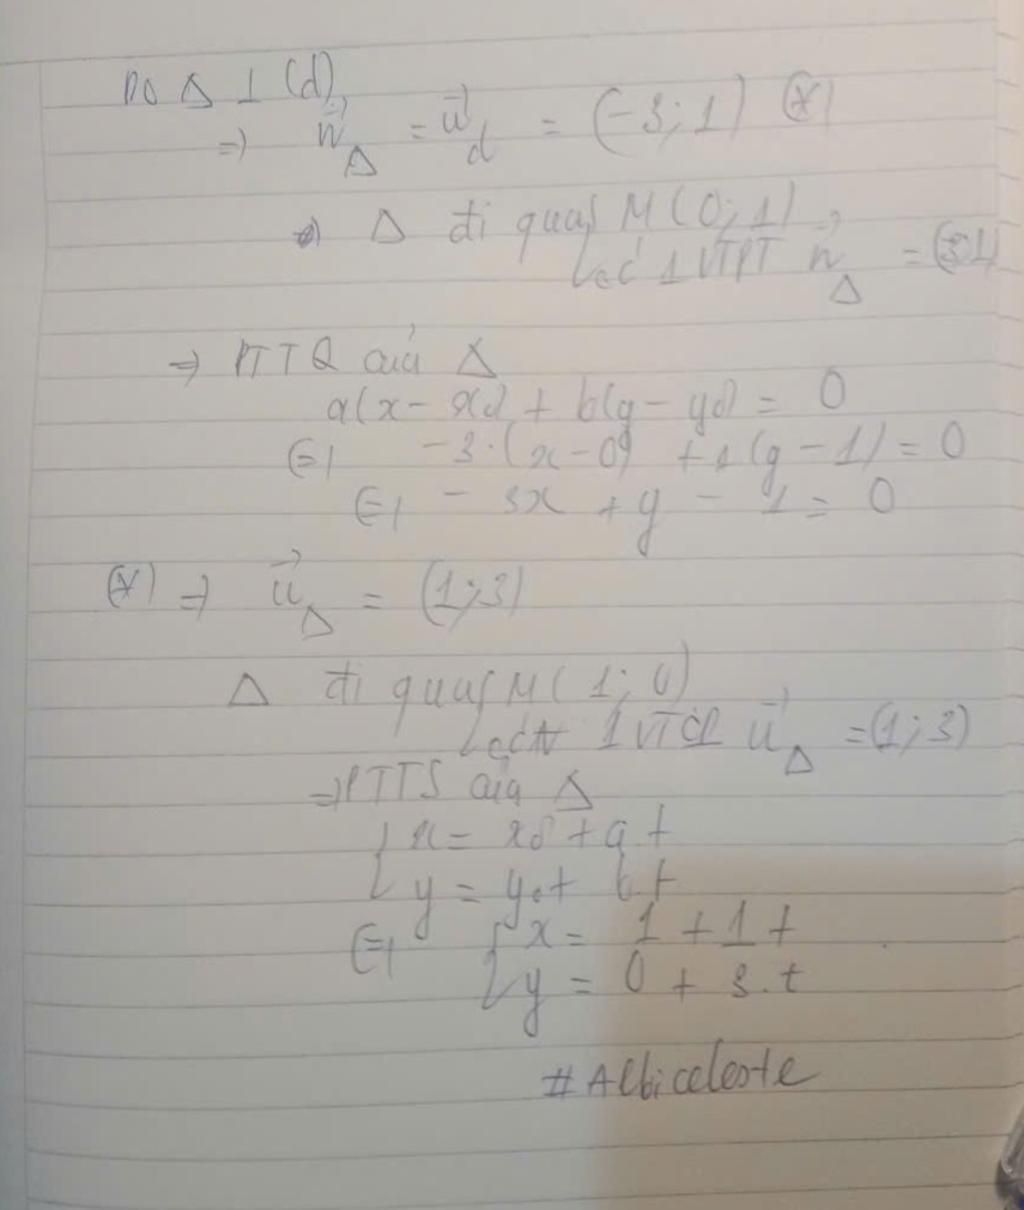 Do Δ ⊥ (d)
=> n⃗Δ = u⃗d = (-3;1) (*)
=> Δ đi qua M(0;1)
có 1 VTPT n⃗Δ =
=> PTTQ của Δ
a(x-x0) + b(y-y0) = 0
<=> -3.(x-0) + 1(y-1) = 0
<=> -3x + y - 1 = 0
(*) => u⃗Δ = (1;3)
Δ đi qua M(1;0)
1 VTCP u⃗Δ = (1;3)
=> PTTS của Δ
{ x = x0 + at
y = y0 + bt
<=> { x = 1 + 1t
y = 0 + 3.t
# Albiceleste